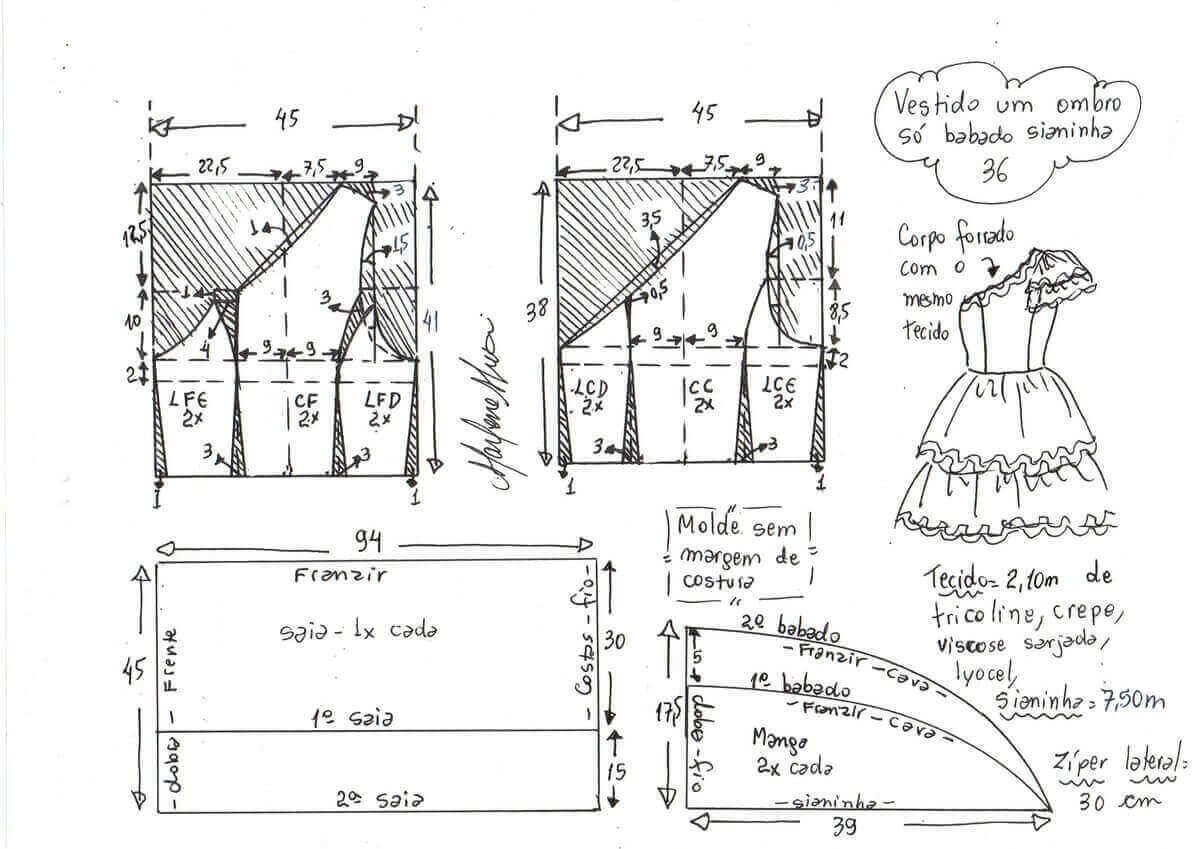 Vestido um ombro
só babado sianinha
36
45
22,5
7,5
9
3
12,5
1
1,5
1
3
10
41
4
9
9
2
LFE
2x
CF
2x
LFD
2x
3
3
1
1
45
22,5
7,5
9
3
11
3,5
0,5
38
0,5
8,5
9
9
2
LCD
2x
CC
2x
LCE
2x
3
3
1
1
Corpo forrado
com o
mesmo
tecido
94
Franzir
saia - 1x cada
45
30
dobra - Frente
Costas - fio
1ª saia
15
2ª saia
Molde sem
margem de
costura
2º babado
- Franzir - cava -
5
1º babado
- Franzir - cava -
17,5
dobra - fio
Manga
2x cada
- sianinha -
39
Tecido = 2,10m de
tricoline, crepe,
viscose sarjada,
lyocel,
sianinha = 7,50m
Zíper lateral =
30 cm